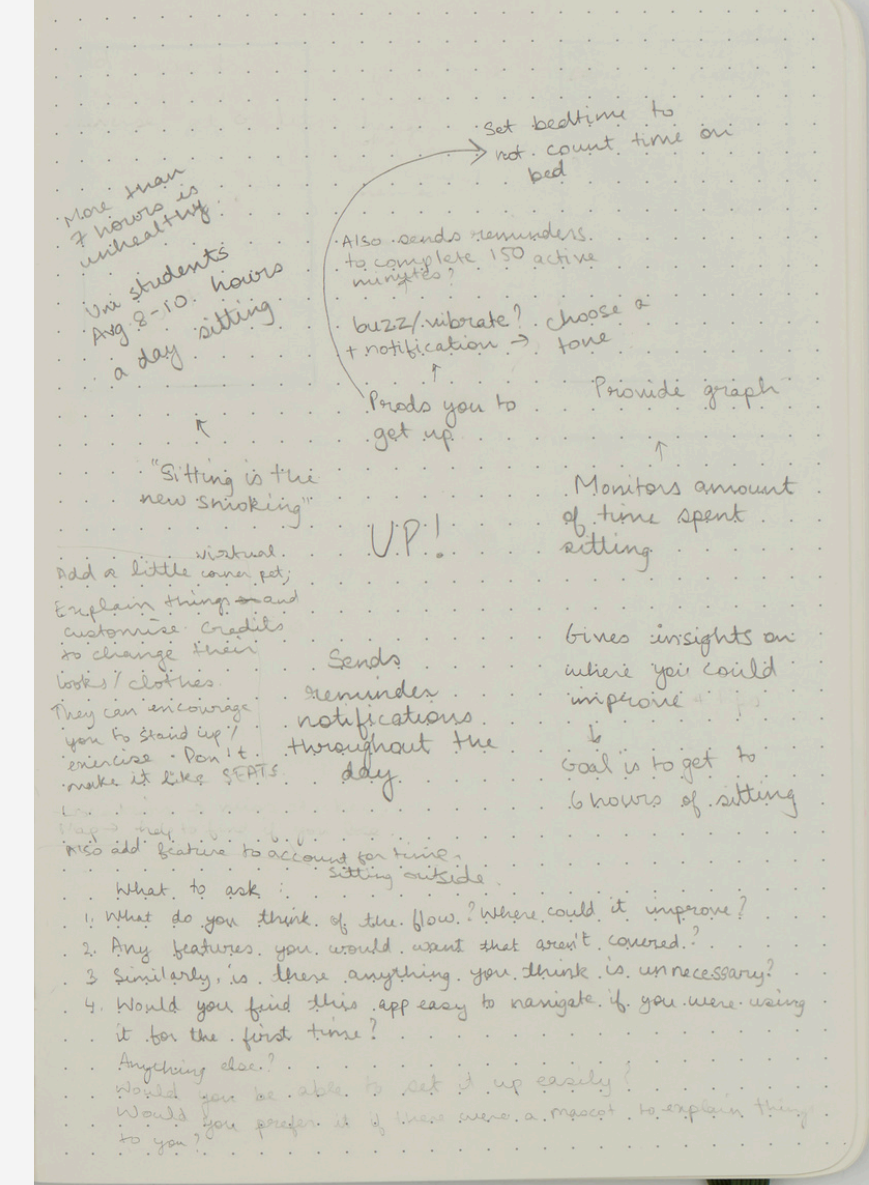 Set bedtime to
not count time on
bed
More than
7 hours is
unhealthy
Uni students
Avg 8-10 hours
a day sitting
Also sends reminders
to complete 150 active
minutes?
buzz/vibrate? choose a
+ notification → tone
Prods you to
get up
Provide graph
"Sitting is the
new smoking"
UP!
Monitors amount
of time spent
sitting
virtual
Add a little corner pet;
Explain things and
customise credits
to change their
looks/clothes.
They can encourage
you to stand up/
exercise. Don't
make it like SEATS
Sends
reminder
notifications
throughout the
day
Gives insights on
where you could
improve
Goal is to get to
6 hours of sitting
Also add feature to account for time
sitting outside
What to ask:
1. What do you think of the flow? Where could it improve?
2. Any features you would want that aren't covered?
3 Similarly, is there anything you think is unnecessary?
4. Would you find this app easy to navigate if you were using
it for the first time?
Anything else?
Would you be able to set it up easily?
Would you prefer it if there were a mascot to explain things
to you?